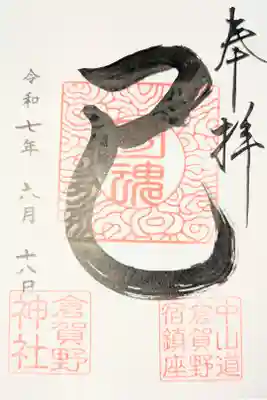 奉拝
巳
魂
令和七年 六月 十八日
中山道
倉賀野
宿鎮座
倉賀野
神社